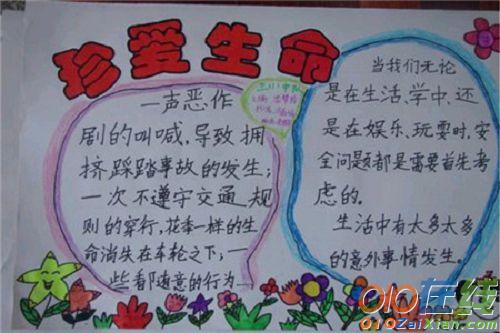 珍爱生命
一声恶作
剧的叫喊,导致拥
挤踩踏事故的发生;
一次不遵守交通规
则的穿行,花季一样的生
命消失在车轮之下;一
些看都随意的行为一
当我们无论
是在生活、学中,还
是在娱乐、玩耍时,安
全问题都是需要首先考
虑的。
生活中有太多太多
的意外事情发生。
010在线
010ZaiXian.com